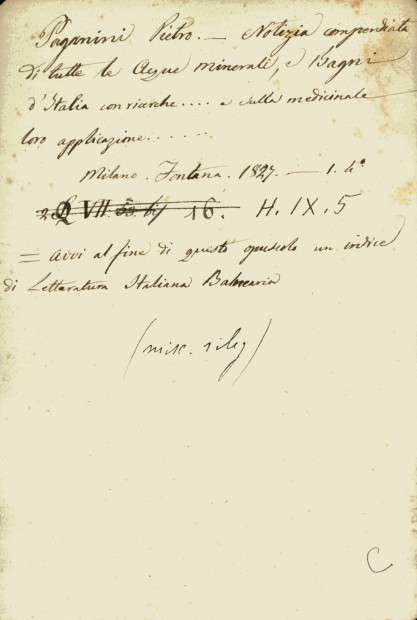 Paganini Pietro. — Notizia compendiata
di tutte le Acque minerali, e Bagni
d'Italia con ricerche.... e sulla medicinale
loro applicazione......
Milano. Fontana. 1827. — 1. 4°
Q VII. 16. H. IX. 5
= Avvi al fine di questo opuscolo un indice
di Letteratura Italiana Balnearia
(misc. rileg)
C